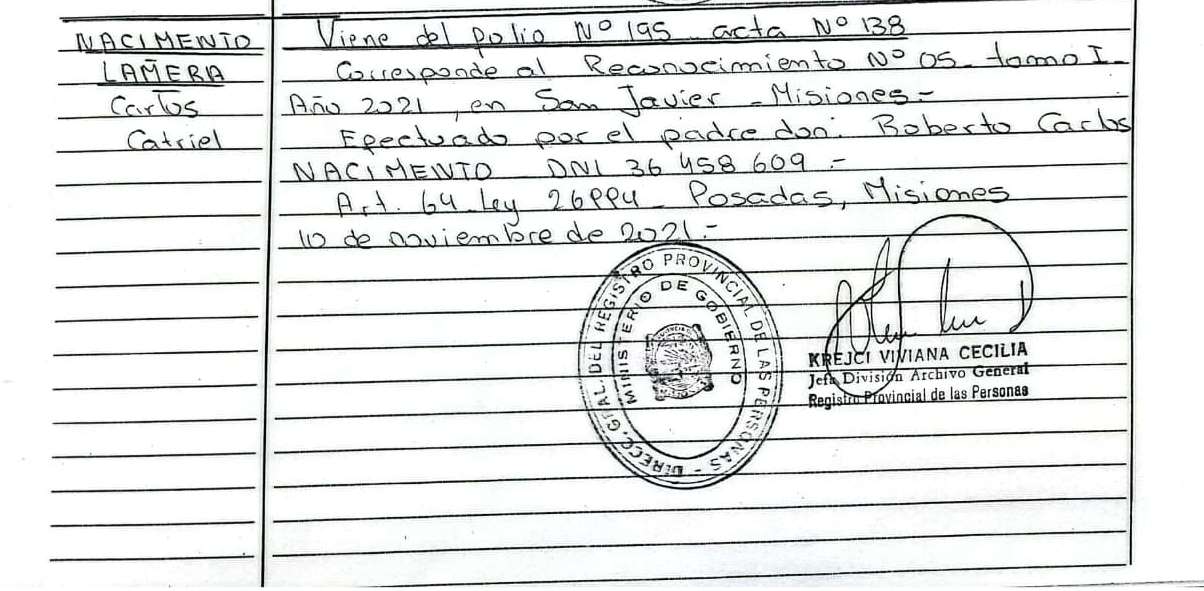 NACIMENTO
LAÑERA
Carlos
Catriel
Viene del folio Nº 195 acta Nº 138
Corresponde al Reconocimiento Nº 05 - tomo I -
Año 2021, en San Javier - Misiones.-
Efectuado por el padre don: Roberto Carlos
NACIMENTO DNI 36 458 609.-
Art. 64 Ley 26994 - Posadas, Misiones
10 de noviembre de 2021.-
DIRECC. GRAL. DEL REGISTRO PROVINCIAL DE LAS PERSONAS -
MINISTERIO DE GOBIERNO
KREJCI VIVIANA CECILIA
Jefa División Archivo General
Registro Provincial de las Personas